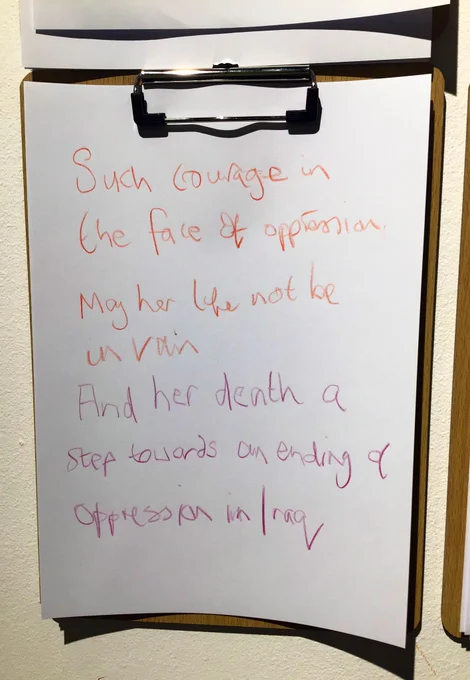 Such courage in
the face of oppression.
May her life not be
in vain
And her death a
step towards an ending of
oppression in Iraq